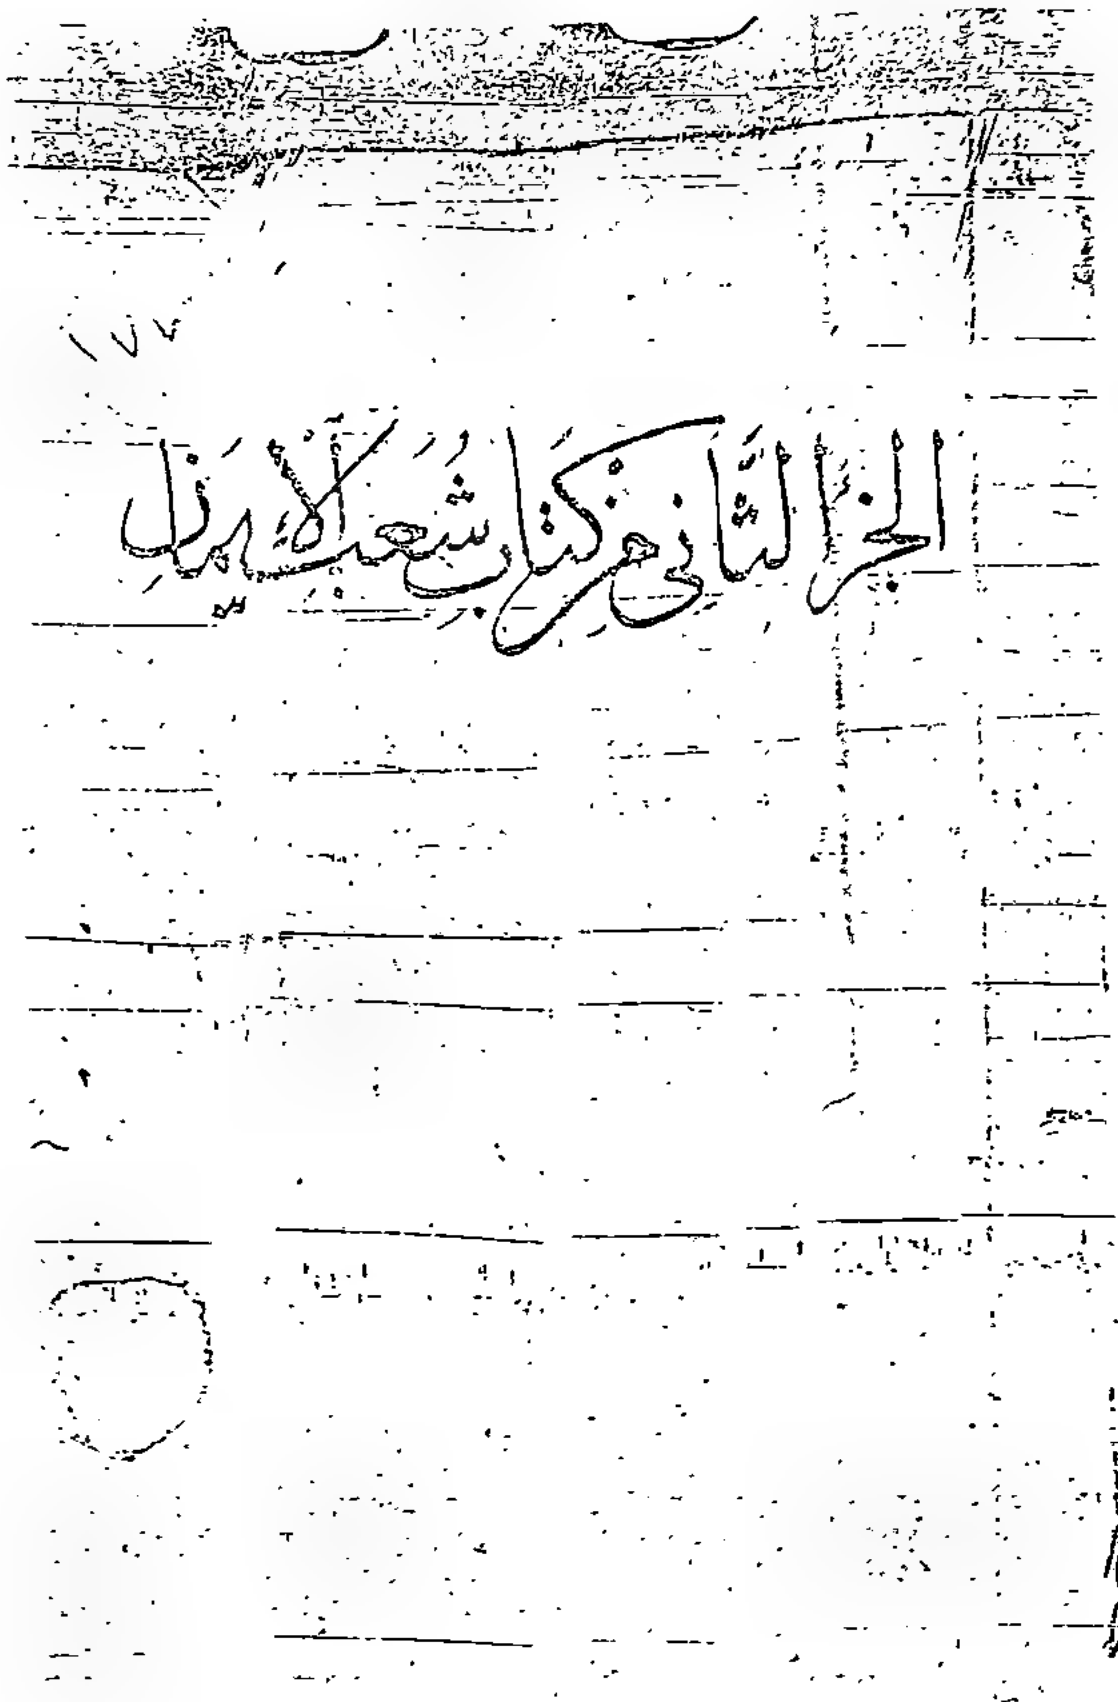 ١٧٧
الجزا لثاني من كتاب شعب الإيمان